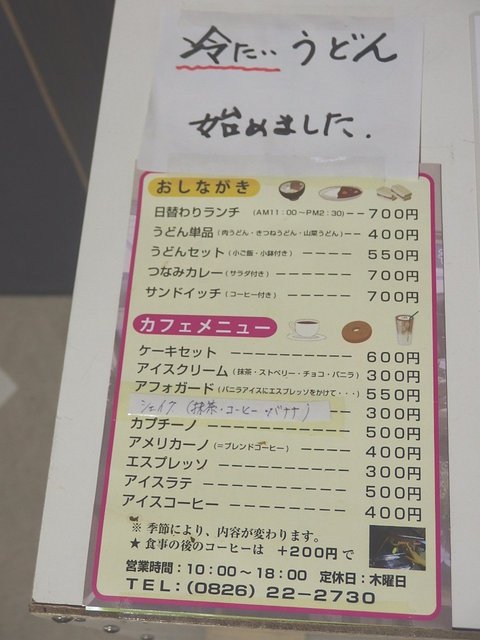 冷たい うどん
始めました.
おしながき
日替わりランチ (AM11:00〜PM2:30)−− 700円
うどん単品 (肉うどん・きつねうどん・山菜うどん)−− 400円
うどんセット (小ご飯・小鉢付き) −−−− 550円
つなみカレー (サラダ付き) −−−−−− 700円
サンドイッチ (コーヒー付き) −−−−− 700円
カフェメニュー
ケーキセット −−−−−−−−−− 600円
アイスクリーム (抹茶・ストベリー・チョコ・バニラ) 300円
アフォガード (バニラアイスにエスプレッソをかけて・・・) 550円
シェイク (抹茶・コーヒー・バナナ) 300円
カプチーノ −−−−−−−−−−− 500円
アメリカーノ (=ブレンドコーヒー) −−−− 400円
エスプレッソ −−−−−−−−−− 300円
アイスラテ −−−−−−−−−−− 500円
アイスコーヒー −−−−−−−−− 400円
※ 季節により、内容が変わります。
★ 食事の後のコーヒーは +200円で
営業時間：10：00〜18：00 定休日：木曜日
TEL：(0826) 22−2730